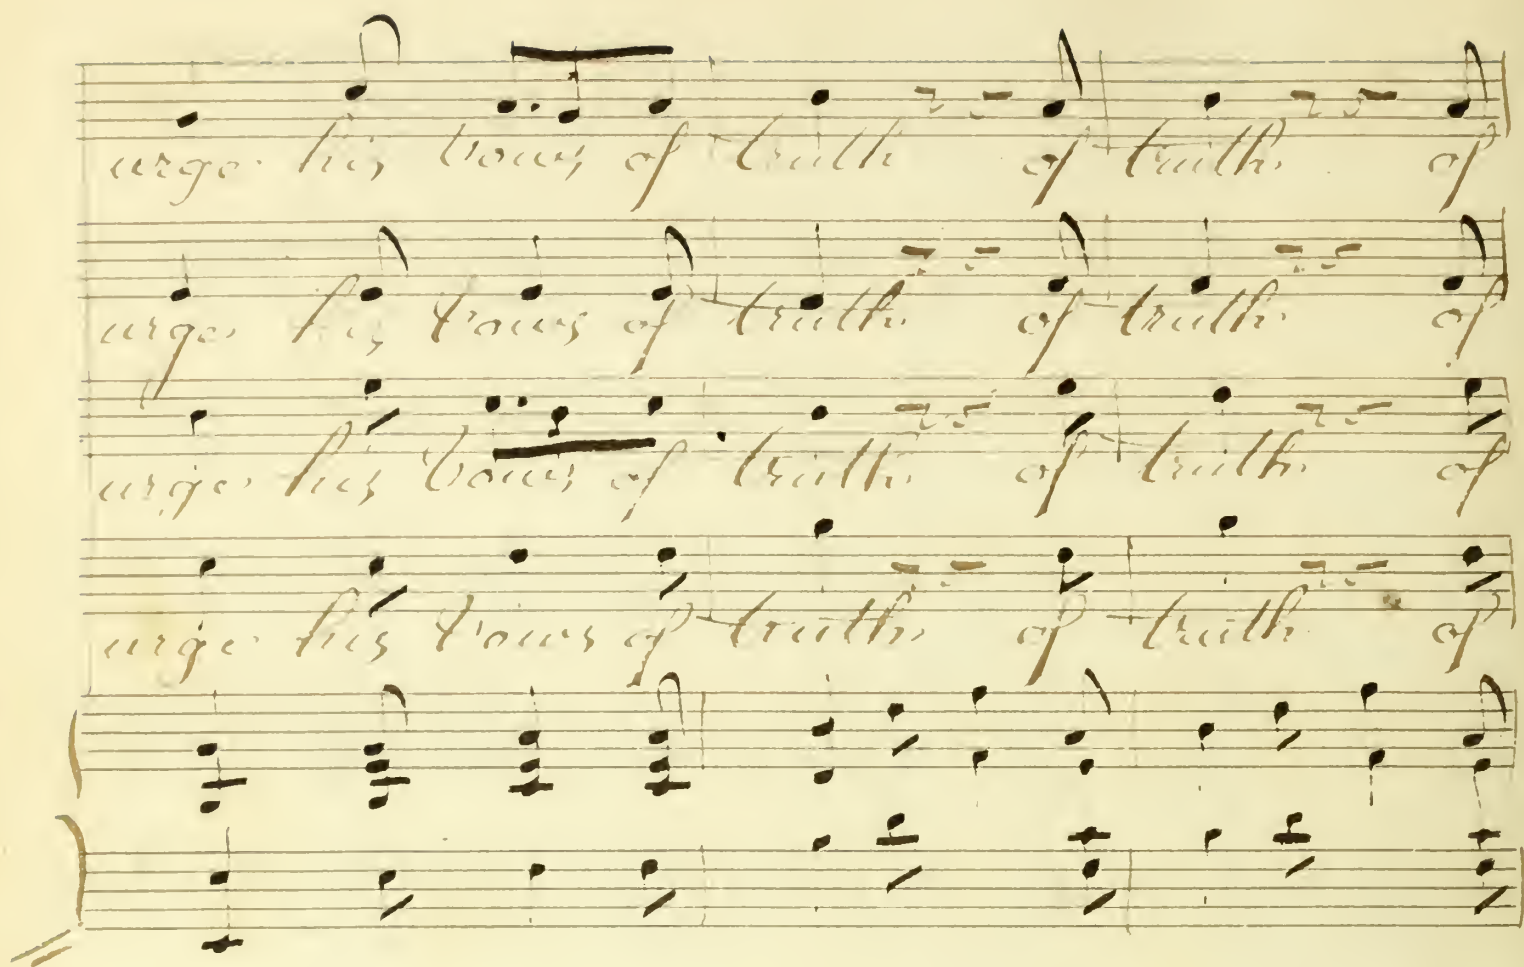 urge his vows of truth of truth of
urge his vows of truth of truth of
urge his vows of truth of truth of
urge his vows of truth of truth of